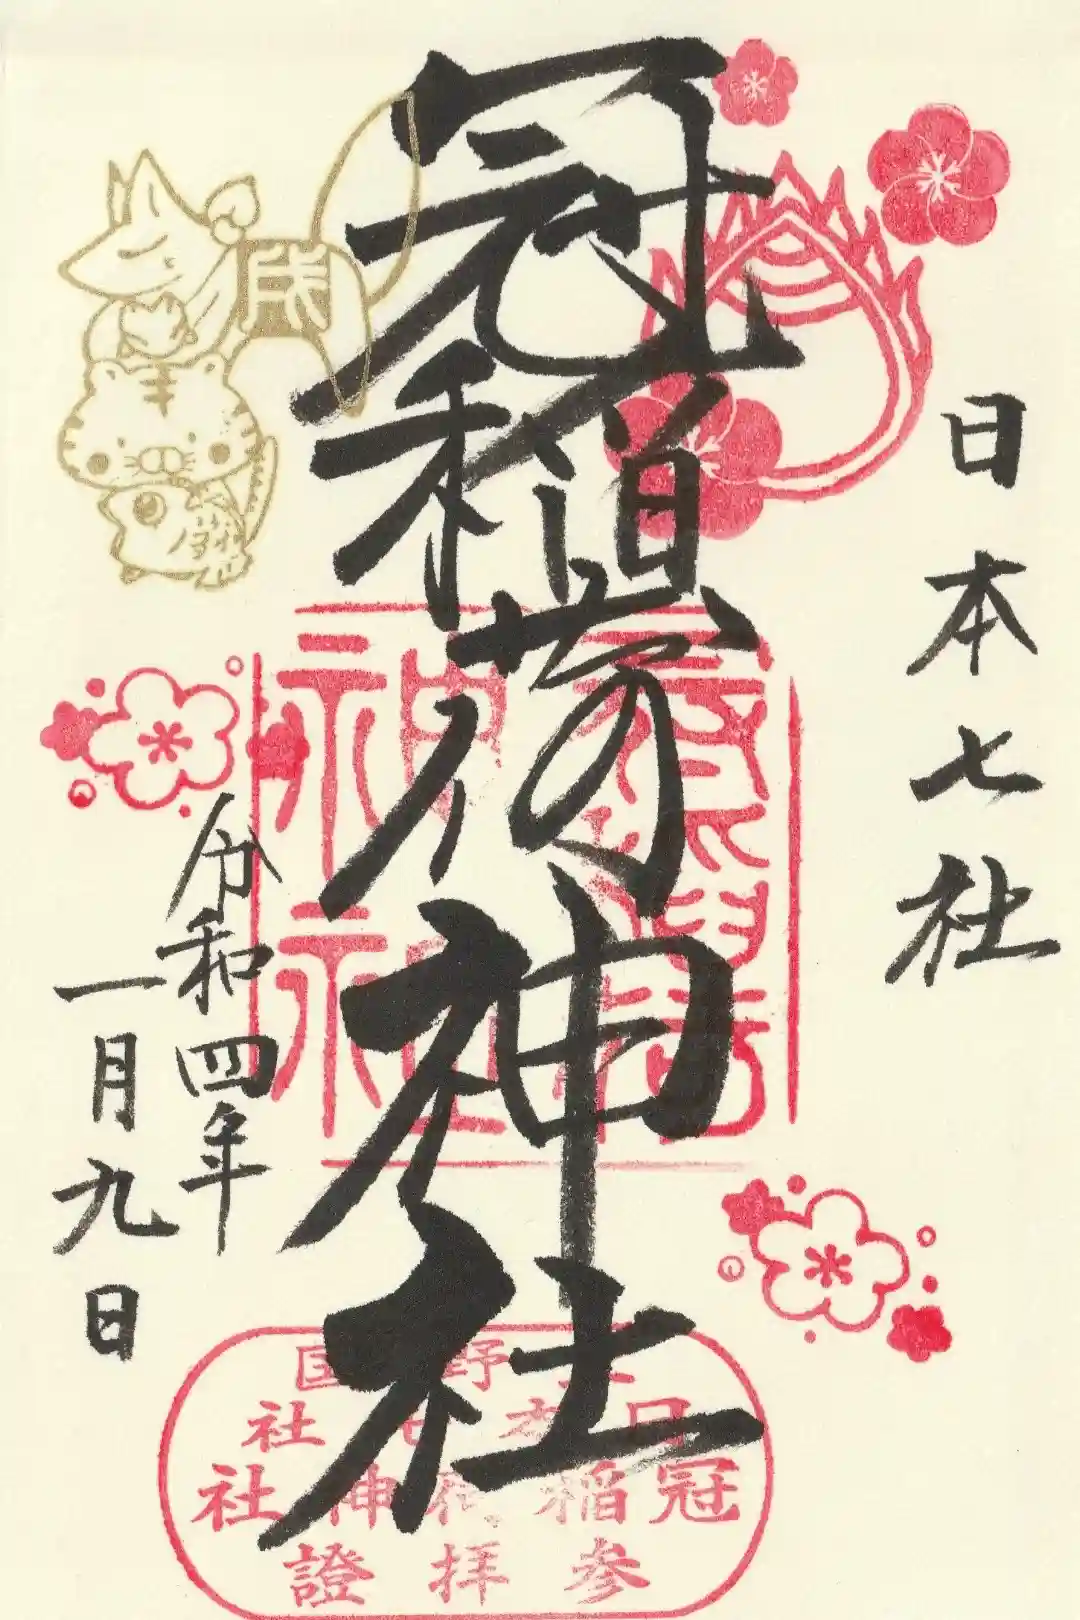 日本七社
冠稲荷神社
令和四年
一月九日
神社
国 野
社 七 本 日
社 神 荷 稲 冠
證 拝 参